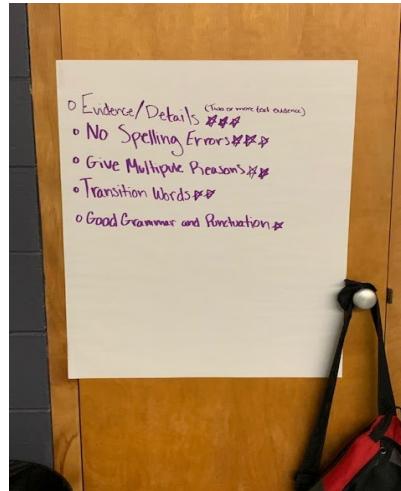 o Evidence/Details (Two or more text evidence) ☆☆☆
o No Spelling Errors ☆☆☆
o Give Multipule Reasons ☆☆
o Transition Words ☆☆
o Good Grammar and Punctuation ☆